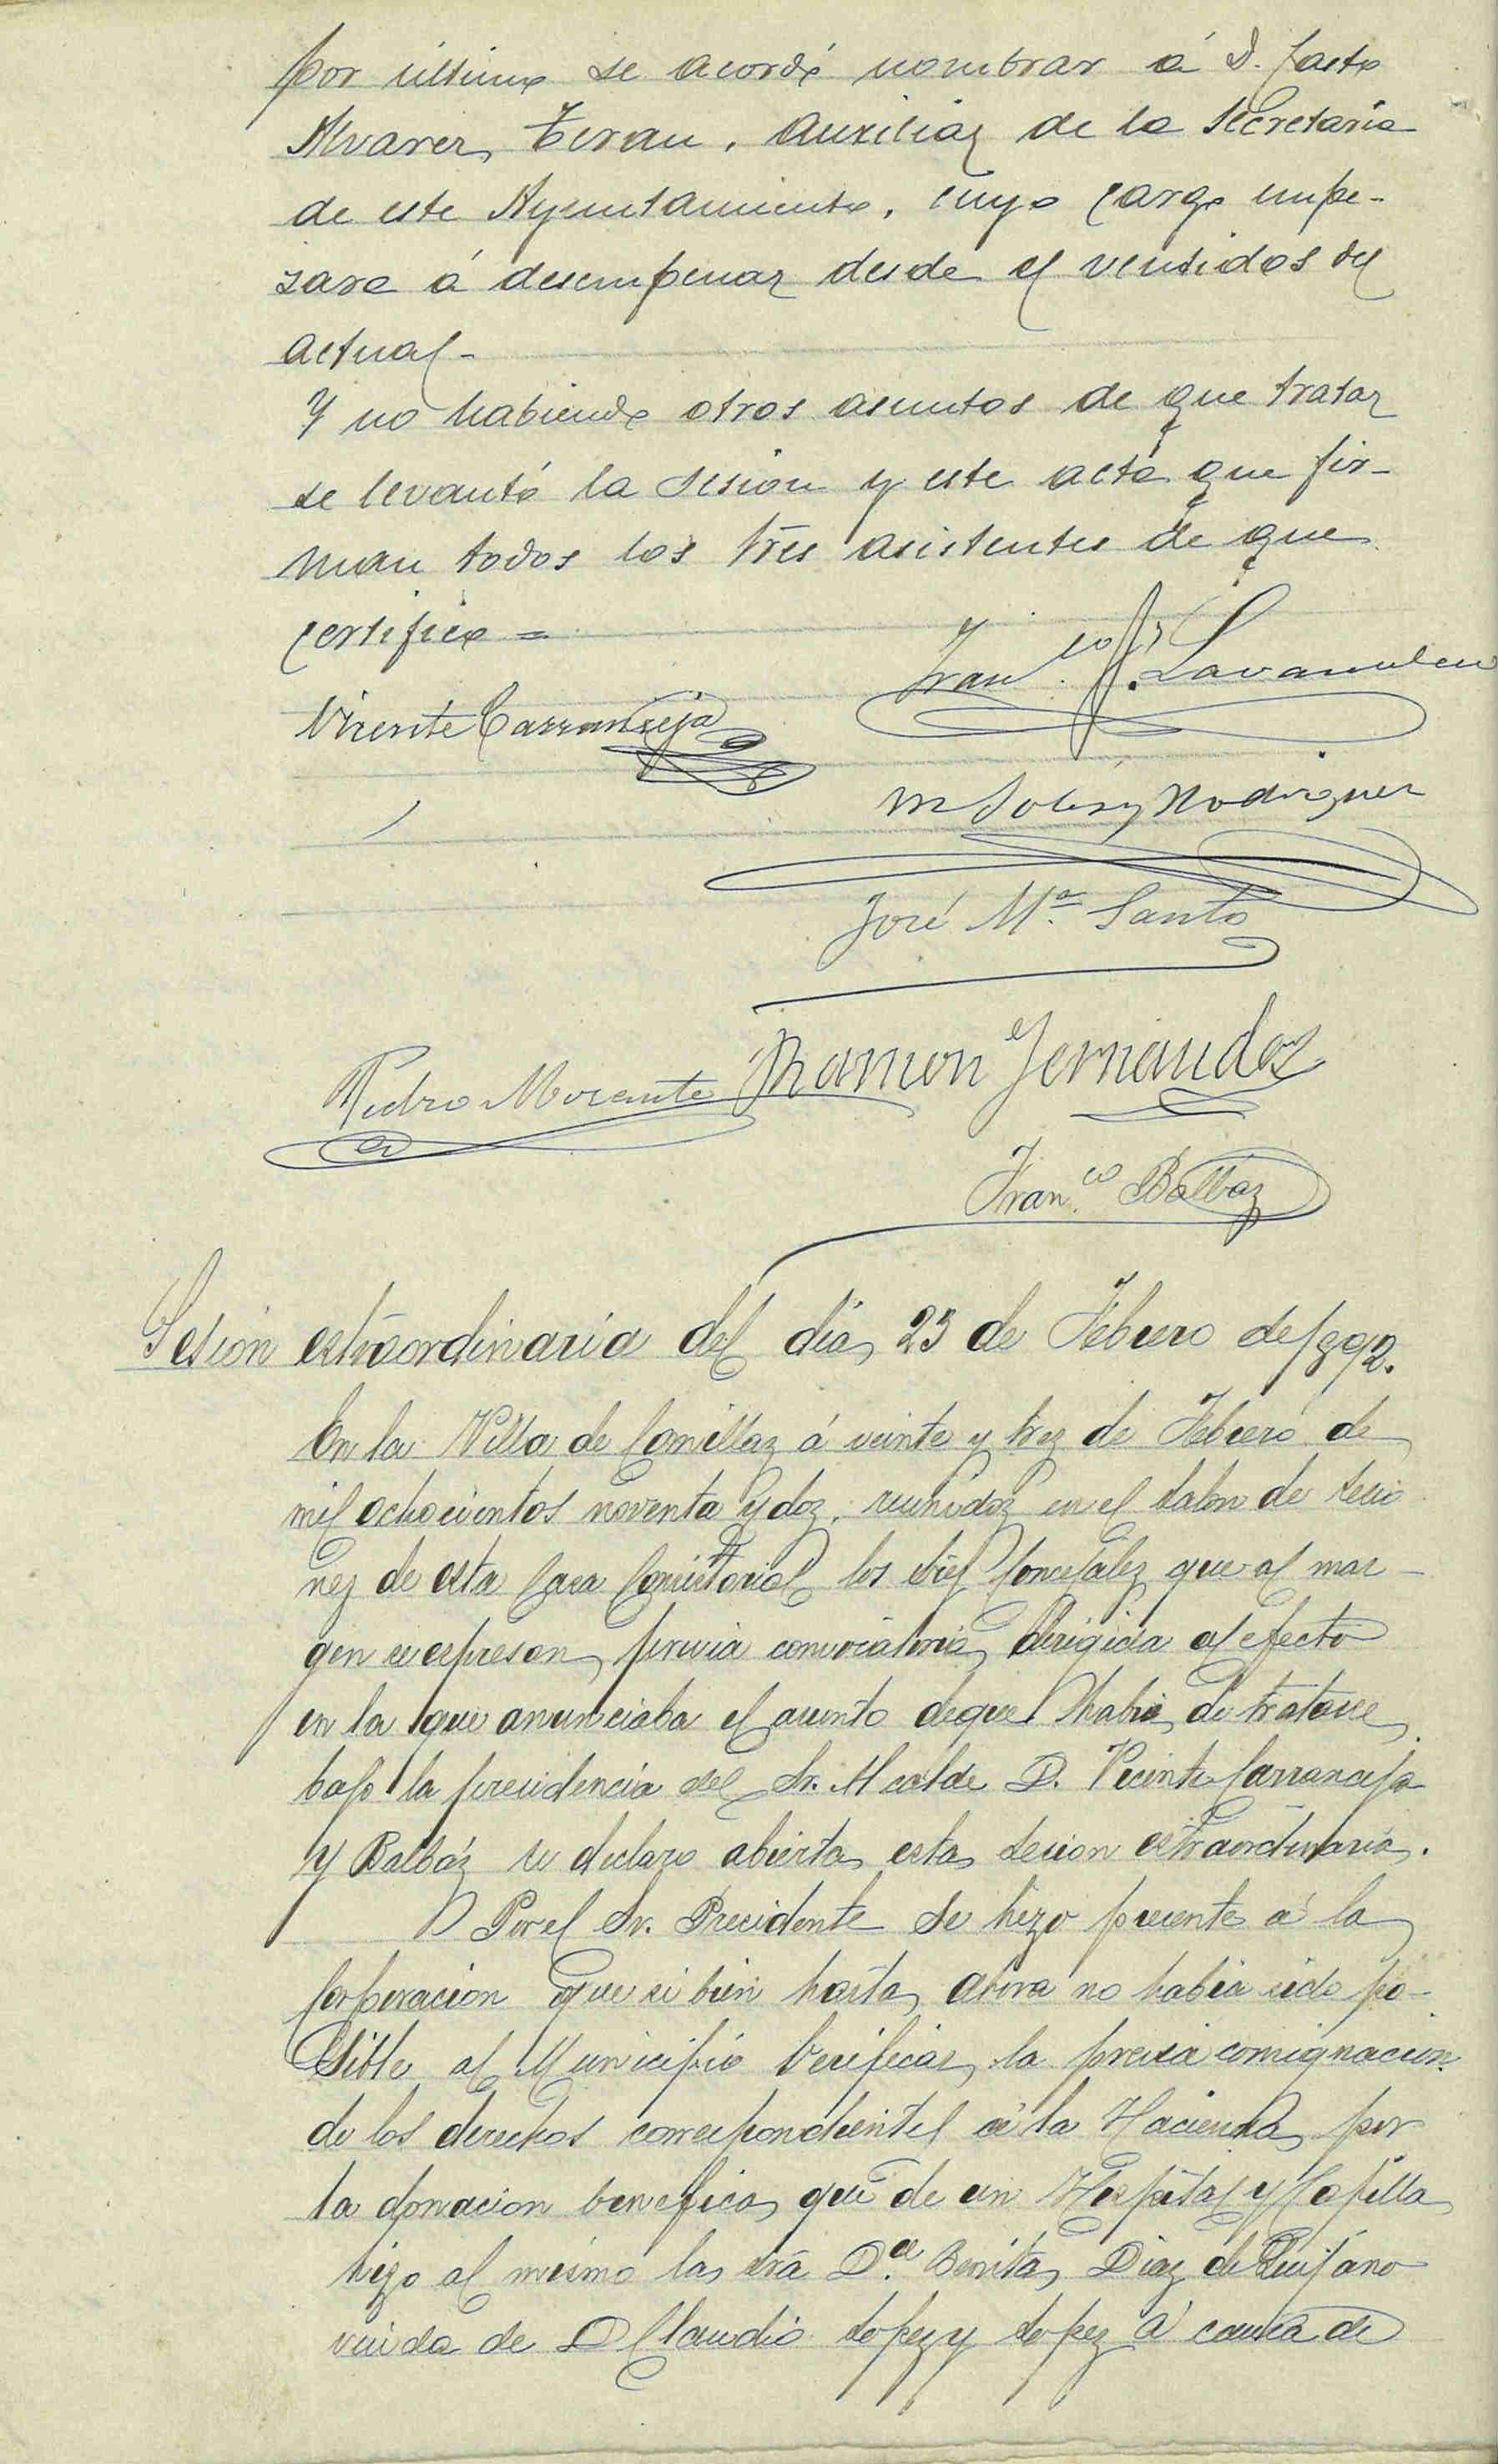 por último se acordó nombrar á D. Justo
Alvarez Teran, Auxiliar de la Secretaria
de este Ayuntamiento, cuyo cargo empe-
zara á desempeñar desde el ventidos del
actual-
Y no habiendo otros asuntos de que tratar
se levantó la sesion y este acta que fir-
man todos los Sres asistentes de que
certifico =
Franco J.
Vicente Carranceja
M Solis y Rodriguez
José Mª Santo
Pedro Morante Ramon Fernandez
Franco Balbaz
Sesion estraordinaria del dia 23 de Febrero de 1892.
En la Villa de Comillaz á veinte y trez de Febrero de
mil ochocientos noventa y doz, reunidoz en el salon de secio
nez de esta Casa Consistorial los Sres Concejalez que al mar-
gen se espresan, previa convocatoria, dirigida al efecto
en la que anunciaba el asunto de que habia de tratarse
bajo la presidencia del Sr. Alcalde D. Vicente Carranceja
y Balbáz se declaro abierta esta secion estraordinaria.
Por el Sr. Precidente se hizo precente á la
Corporacion que si bien hasta ahora no habia sido po-
sible al Municipio Verificar la precisa consignacion
de los derechos correspondientes á la Hacienda por
la donacion benefica que de un Hospital y Capilla
hizo al mismo la sra Dª. Benita Diaz de Quijano
viuda de D Claudio Lopez y Lopez á causa de